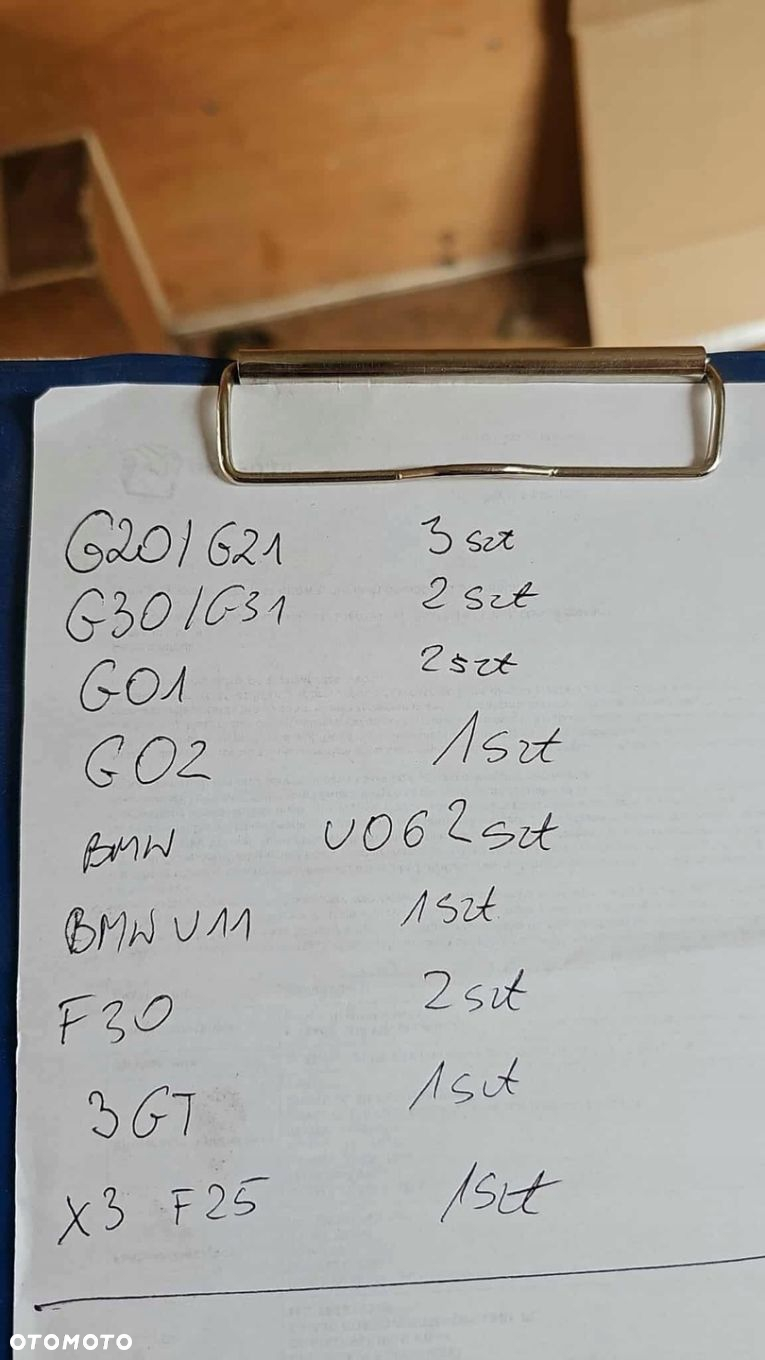 G20/G21 3 szt
G30/G31 2 szt
G01 2szt
G02 1szt
BMW U06 2szt
BMW U11 1szt
F30 2szt
3GT 1szt
X3 F25 1szt
OTOMOTO